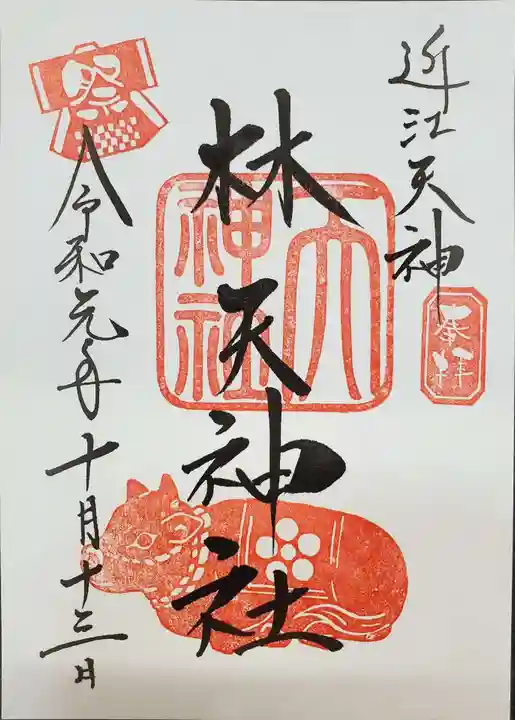 近江天神
奉拝
林天神社
天神社
祭
令和元年十月十三日